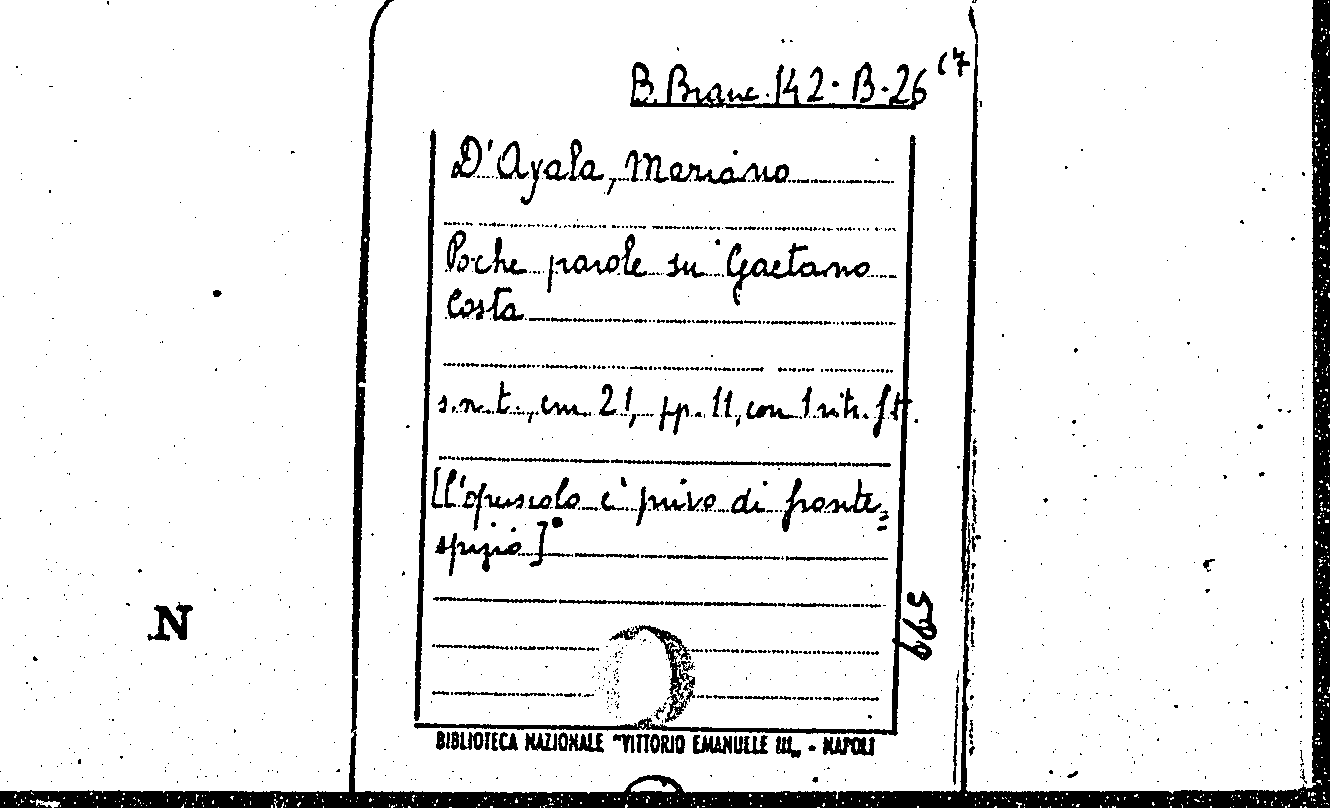 B. Branc. 142. B. 26 (7
D'Ayala, Mariano
Poche parole su Gaetano
Costa
s.n.t., cm. 21, pp. 11, con 1 ritr. f.t.
[L'opuscolo è privo di fronte=
spizio].
N
599
BIBLIOTECA NAZIONALE "VITTORIO EMANUELE III„ - NAPOLI